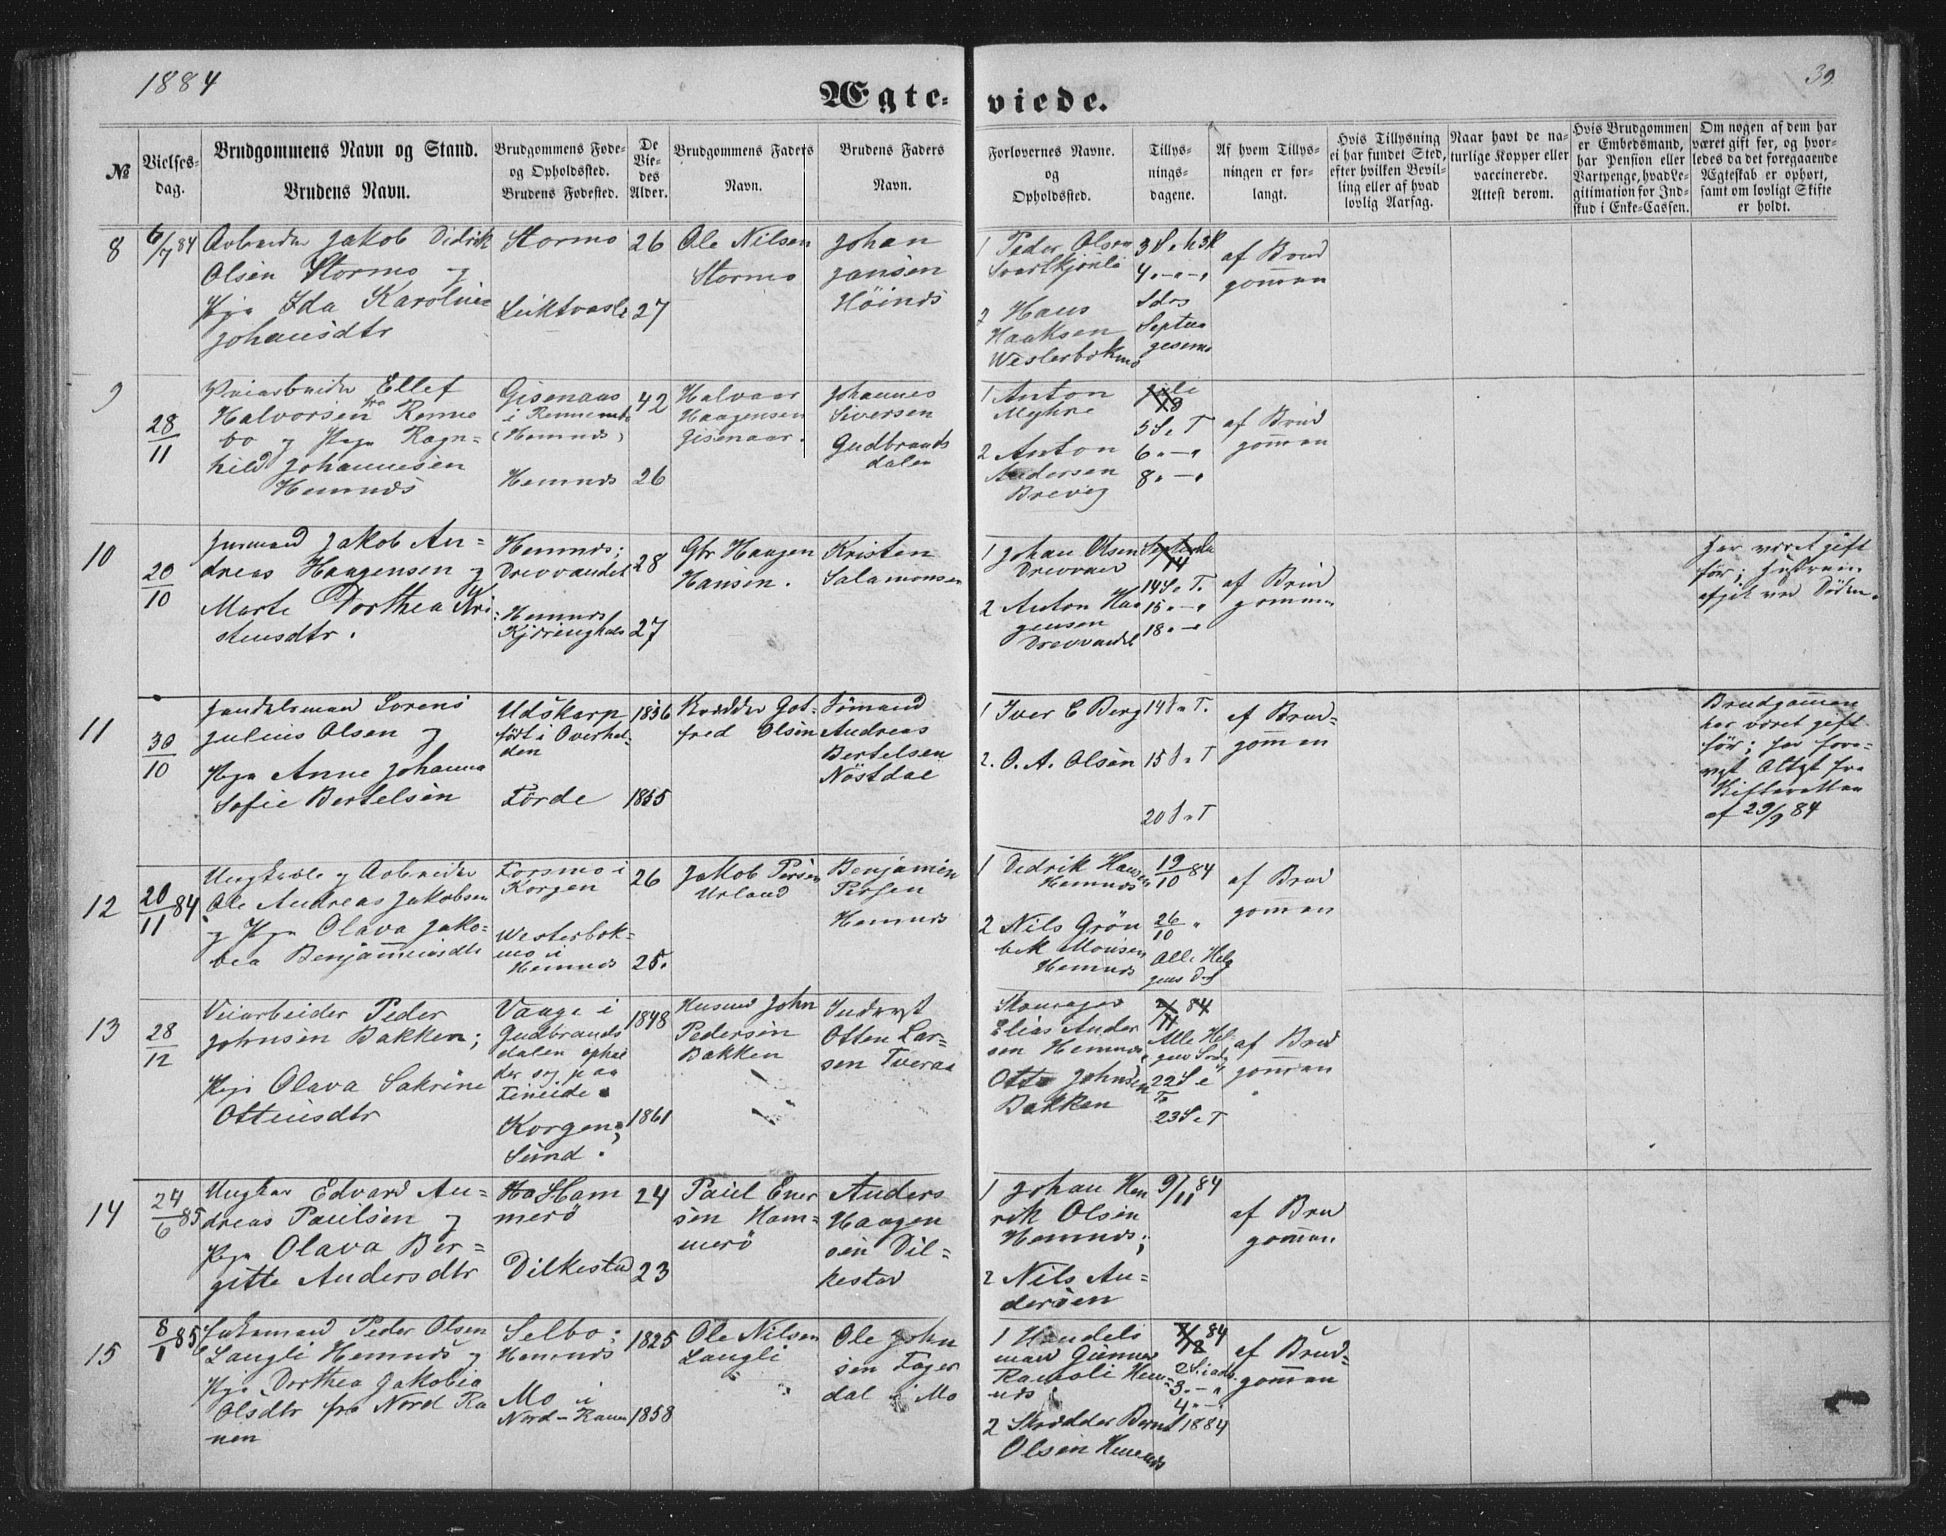 1884
39.
Ægte-viede.
№
Vielses-dag.
Brudgommens Navn og Stand.
Brudens Navn.
Brudgommens Føde- og Opholdssted.
Brudens Fødested.
De Viedes Alder.
Brudgommens Faders Navn.
Brudens Faders Navn.
Forlovernes Navne.
og
Opholdssted.
Tillysningsdagene.
Af hvem Tillysningen er forlangt.
Hvis Tillysning
ei har fundet Sted,
efter hvilken Bevilling eller af hvad
lovlig Aarsag.
Naar havt de naturlige Kopper eller
vaccinerede.
Attest derom.
Hvis Brudgommen
er Embedsmand,
har Pension eller
Vartpenge, hvad Legitimation for Indskud i Enke-Cassen.
Om nogen af dem har
været gift før, og hvorledes da det foregaaende
Ægteskab er ophørt,
samt om lovligt Skifte
er holdt.
8
6/7 84
Arbeider Jakob Didrik
Olsen Stormo og
Pige Ida Karoline
Johansdtr
Stormo
26
27
Ole Nilsen
Stormo
Johan
Jansen
Höinds
1 Peder Olsen
2 Hans
Haaksen
Westerbekmo
Septua
gesima
af Brud
gommen
9
28/11
Veiarbeider Ellef
Halvorsen fra Renne
bo og Pige Ragn=
hild Johannesen
Hemnæs
Gisenaas
i Rennebu
(Hemnæs)
Hemnæs
42
26
Halvaar
Haagensen
Gisenaar.
Johannes
Siversen
Gudbrands
dalen
1 Anton
Myhre
2 Anton
Andersen
Brevig
5 S. e T
6 " — "
8 " — "
af Brud
gommen
10
20/10
Jakob An=
dreas Haagensen og
Marte Dorthea Kri
stensdtr.
Hemnæs;
Drevvandet
Hemnæs
Kjæringhals
28
27
Gbr Haagen
Hansen.
Kristen
Salamonsen
1 Johan Olsen
Drevvand
2 Anton Haa
gensen
Drevvandet
14 S. e T.
15 " — "
18 " — "
af Brud
gommen
har været gift
før; Hustruen
afgik ved Døden.
11
30/10
Handelsmand Lorens
Julius Olsen og
Pige Anne Johanna
Sofie Bertelsen
Udskarp
født i Overhal
den
Førde
1856
1855
Got=
fred Olsen
Andreas
Bertelsen
Nöstdal
1 Iver C Berg
2. O. A. Olsen
14 S. e T.
15 S. e T
20 S. e T
af Brud=
gommen
Brudgommen
har været gift
før; har fore=
vist Attest fra
Skifteretten
af 29/9 84
12
20/11 84
Ungkarl og Arbeider
Ole Andreas Jakobsen
og Pige Olava Jako=
bea Benjaminsdtr
Forsmo i
Korgen
Westerbek=
mo i
Hemnæs
26
25.
Jakob Persen
Urland
Benjamin
Persen
Hemnæs
1 Didrik Hansen
Hemnæs
2 Nils Grön
bek Monsen
Hemnæs
19/10 84
26/10 "
Alle Hel
gens Dag
af Brud
gommen
13
28/12
Veiarbeider Peder
Johnsen Bakken;
Pige Olava Sakrine
Ottinsdtr
Vaage i
Gudbrands
dalen ophol
der seg paa
Fineide.
Korgen;
Sund.
1848
1861
Husmd John
Pedersen
Bakken
Inderst
Otten Lar=
sen Tveraa
Skomager
Elias Ander
sen Hemnæs,
Otto Johnsen
Bakken
84
Alle Hel
gens Søndag
22 S. e
T.
23 S. e T
af Brud
gommen
14
24/6 85
Ungkar Edvard An=
dreas Paulsen og
Pige Olava Ber=
gitte Andersdtr
Ham
merö
Dilkestad
24
23
Paul Ener
sen Ham=
merö
Anders
Haagen
sen Dil=
kestad
1 Johan Hen
rik Olsen
Hemnæs;
2 Nils An=
dersen
9/11 84
af Brud
gommen
15
8/1 85
Enkemand Peder Olsen
Langli Hemnæs og
Pige Dorthea Jakobia
Olsdtr fra Nord Ra
nen
Selbo;
Hemnæs
Mo i
Nord-Ranen
1825
1858
Ole Nilsen
Langli
Ole John
sen Fager
dal i Mo
1 Handels
man Gunner
Ramsli Hem=
næs
2 Skrædder Bernt
Olsen Hemnæs
84
2 S. i adv.
3 " — "
4 " — "
1884
af Brud=
gommen